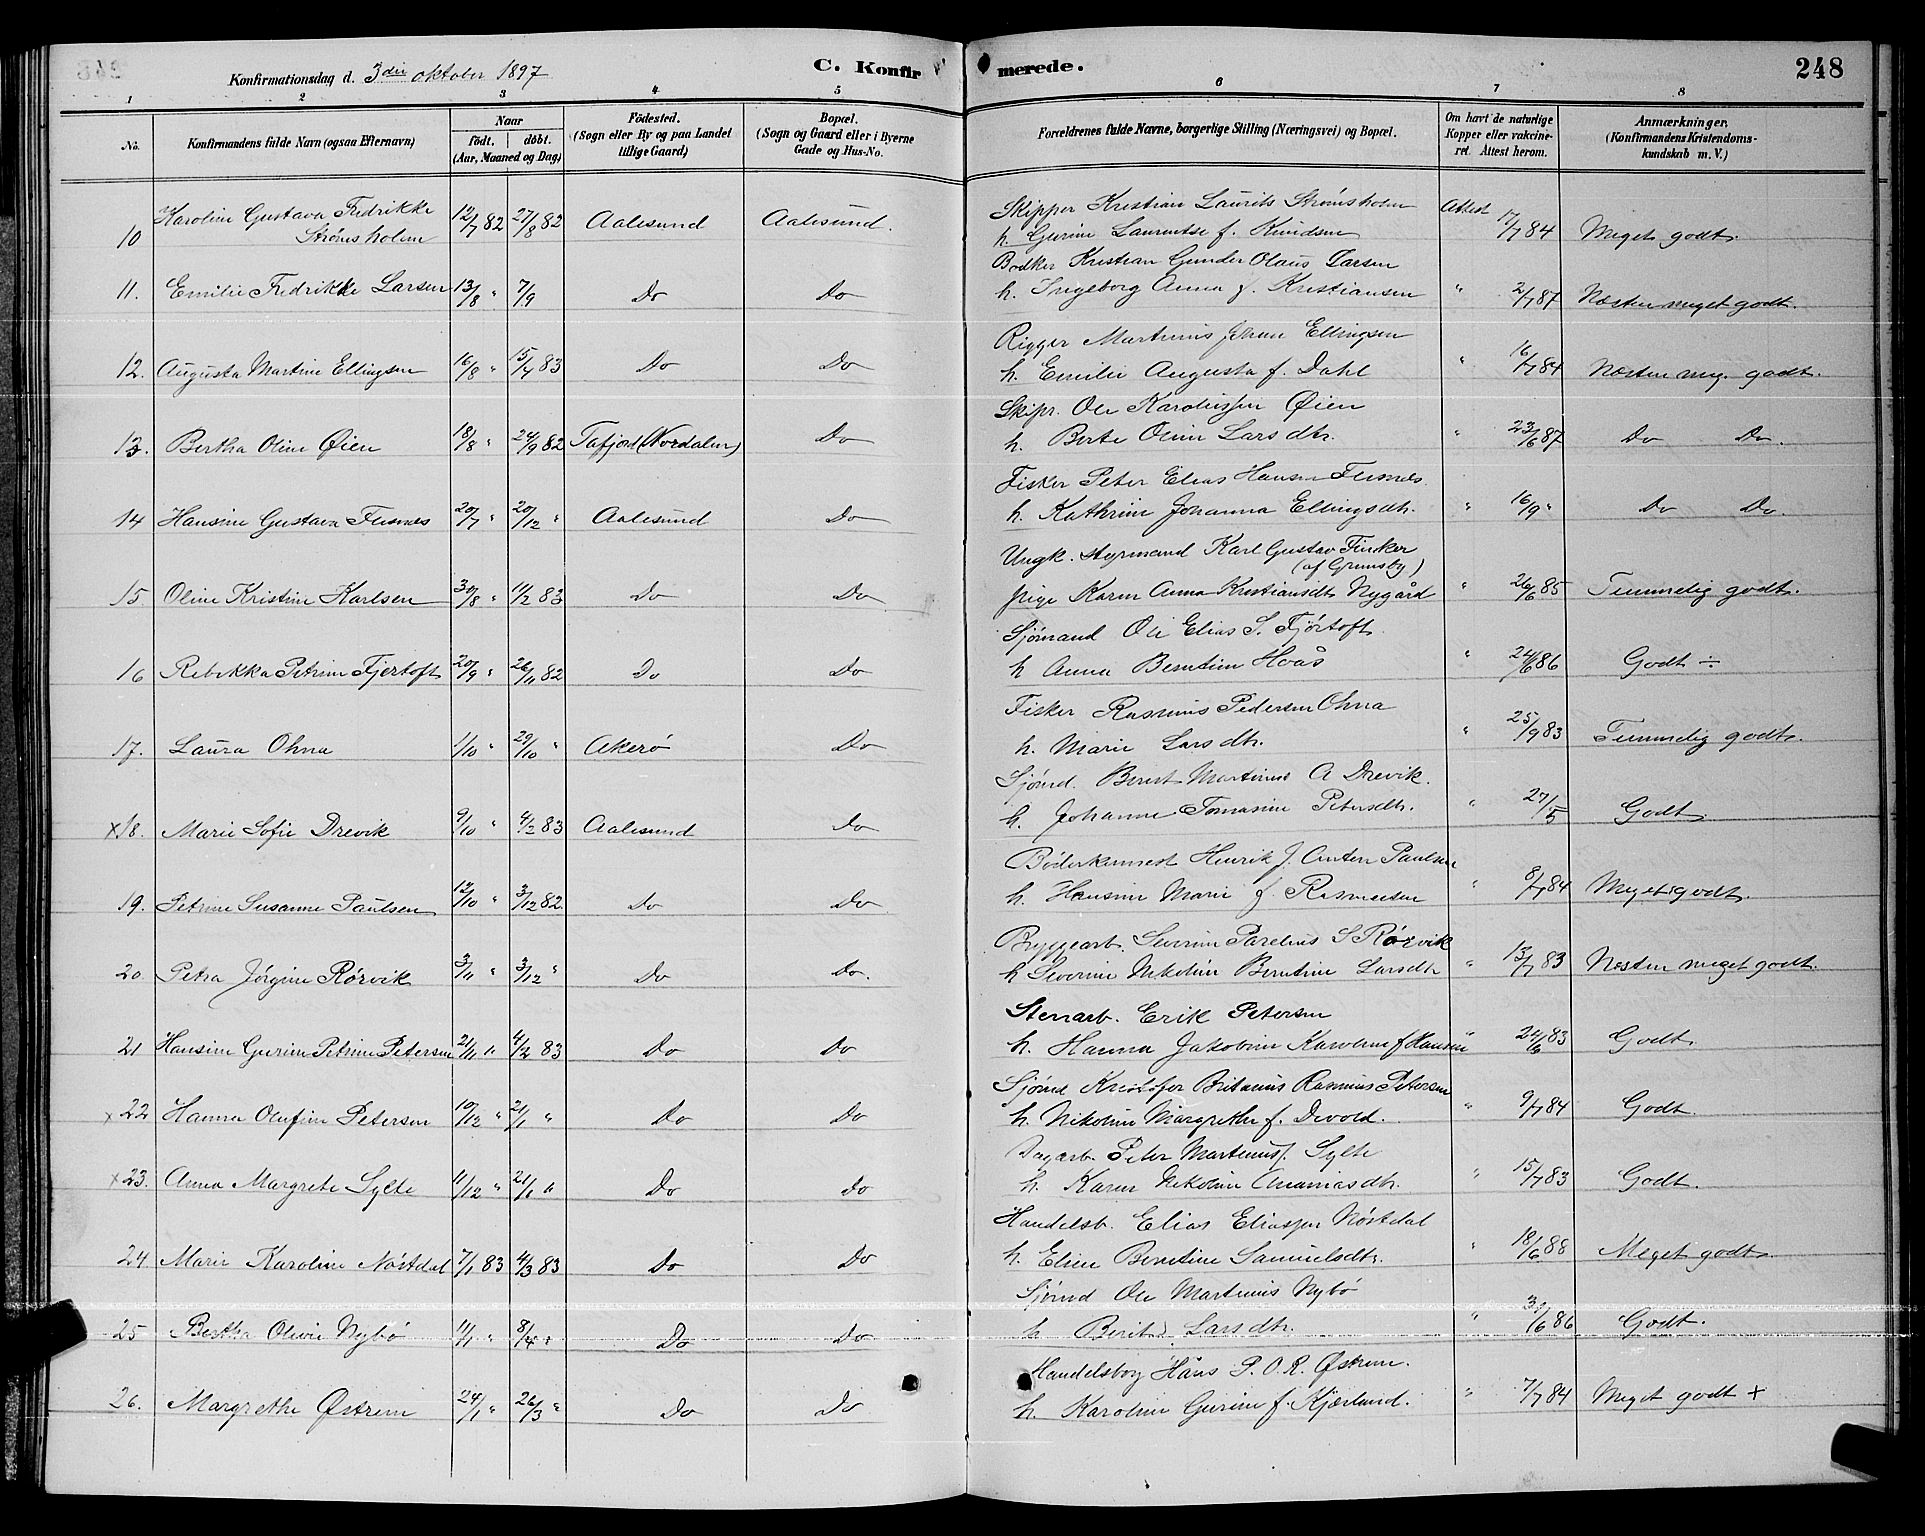 Konfirmationsdag d. 3die oktober 1897 C. Konfirmerede. 248
1 2 3 4 5 6 7 8
No. Konfirmandens fulde Navn (ogsaa Efternavn) Naar født. døbt. (Aar, Maaned og Dag) Fødested. (Sogn eller By og paa Landet tillige Gaard) Bopæl. (Sogn og Gaard eller i Byerne Gade og Hus-No. Forældrenes fulde Navne, borgerlige Stilling (Næringsvei) og Bopæl. Om havt de naturlige Kopper eller vakcineret. Attest herom. Anmærkninger. (Konfirmandens Kristendomskundskab m. V.)
Karoline Gustava Fredrikke 12/7 82 27/8 82 Aalesund Aalesund. Skipper Kristian Laurits Strømsholm Attest 17/7 84 Meget godt.
10 Strømsholm h. Gurine Laurentse f. Knudsen
Bødker Kristian Gunder Olaus Larsen
11. Emilie Fredrikke Larsen 13/8 " 7/9 Do Do h. Ingeborg Anna f. Kristiansen " 2/7 87 Næsten meget godt.
Rigger Martinus Johan Ellingsen
12. Augusta Martine Ellingsen 16/8 " 15/4 83 Do Do h. Emilie Augusta f. Dahl " 16/7 84 Næsten meg. godt.
Skipr. Ole Karolussen Øien
13. Bertha Oline Øien 18/8 " 24/9 82 Tafjord (Nordalen) Do h. Berte Oline Larsdtr. " 23/6 87 Do Do.
Fisker Peter Elias Hansen Fusnes
14 Hansine Gustava Fusnes 20/7 " 20/12 " Aalesund Do h. Kathrine Johanna Ellingsdtr. " 16/9 " Do Do.
Ungk. styrmand Karl Gustav Finker
(af Grimsby)
15. Oline Kristine Karlsen 30/8 " 11/2 83 Do Do. Pige Karen Anna Kristiansdtr Nygård " 26/6 85 Temmelig godt.
Sjømand Ole Elias S. Fjørtoft
16 Rebekka Petrine Fjertoft 20/9 " 26/11 82 Do Do h Anna Berntine Hoås " 24/6 86 Godt ÷
Fisker Rasmus Pedersen Ohna
17. Laura Ohna 1/10 " 29/10 " Akerø Do h. Marie Larsdtr. " 25/9 83 Temmelig godt.
Sjømd. Bernt Martinus A Drevik.
x18. Marie Sofie Drevik 9/10 " 4/2 83 Aalesund Do h. Johanne Tomasine Petersdtr. " 27/5 Godt.
Bødkermest Henrik J. Anten Paulsen
19. Petrine Susanne Paulsen 12/10 " 3/12 82. Do Do. h. Hansine Marie f Rasmussen " 8/7 84 Meget godt.
Byggearb. Severin Parelius S Rørvik
20. Petra Jørgine Rørvik 3/11 " 3/12 " Do Do. h Severine Nikoline Berntine Larsdtr " 13/7 83 Næsten meget godt.
Stenarb. Erik Petersen
21 Hansine Gurine Petrine Petersen 21/11 " 4/2 83 Do Do h. Hanna Jakobine Karoline f Hansen " 24/6 83 Godt.
Sjømd Kristofer Britanus Rasmus Petersen
x22 Hanna Olufine Petersen 10/12 " 21/1 " Do Do h. Nikoline Margrethe f. Devold. " 9/7 84 Godt.
Dagarb. Peter Martinus J. Sylte
x23. Anna Margrete Sylte 11/12 " 21/1 " Do Do h. Karen Nikoline Ananiasdtr. " 15/7 83 Godt.
Handelsb. Elias Eliassen Nøstdal
24 Marie Karoline Nøstdal 7/1 83 4/3 83 Do Do h. Eline Berntine Samuelsdtr. " 18/6 88 Meget godt
Sjømd Ole Martinus Nybø
25 Bertha Olivie Nybø 11/1 " 8/4 " Do Do h Berit Larsdtr. " 30/6 86 Godt.
Handelsborg Hans P. O. R. Østrem.
26. Margrethe Østrem 24/1 " 26/3 " Do Do h. Karoline Gurine f. Kjærlund. " 7/7 84 Meget godt +